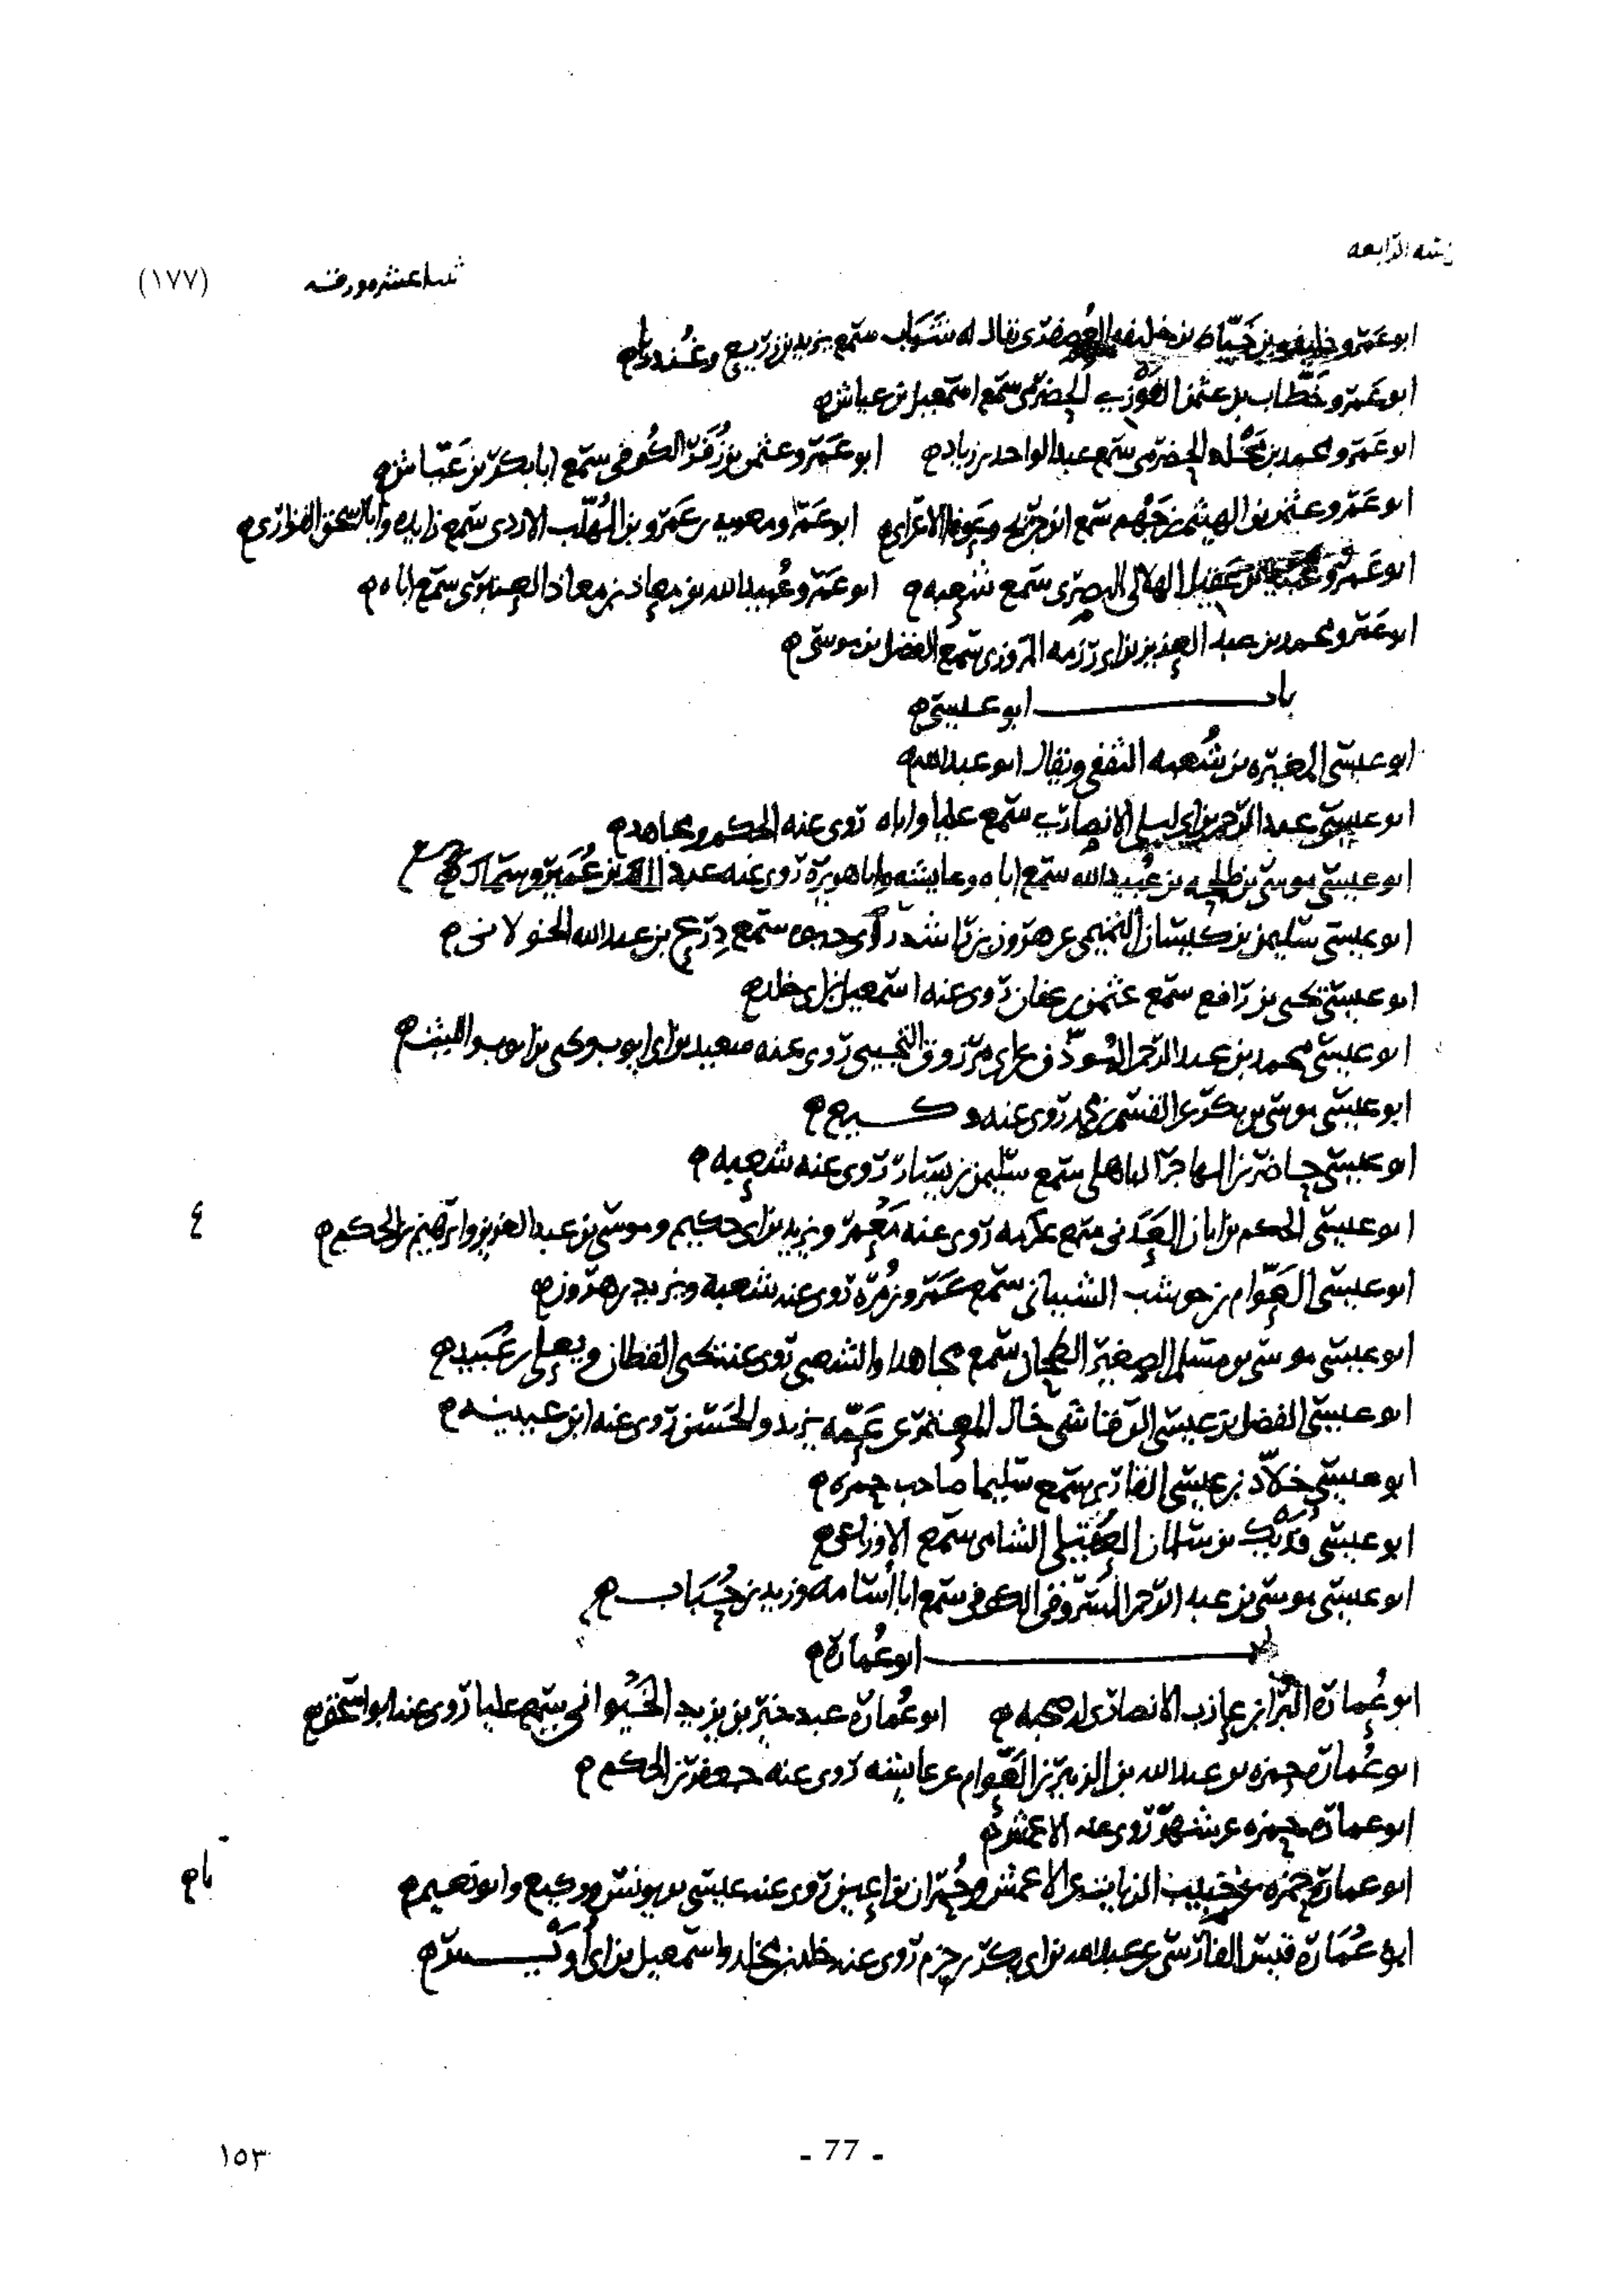 الرابعة
(١٧٧)
ابو عَمرو خليفه بن خَيّاط بن خليفه العُصفرى يقال له شَبَاب سمع يزيد بن زريع وغُندرا
ابو عَمرو خَطّاب بن عثمن الفَوْزى الحضرمى سمع اسمعيل بن عياش
ابو عَمرو محمد بن الحضرمى سمع عبد الواحد بن زياد ابو عَمرو عثمن بن زُفَر الكُوفى سمع ابا بكر بن عَيّاش
ابو عَمرو عثمن بن الهيثم بن جَهْم سمع ابن جريج وعوفا الاعرابى ابو عَمرو معويه بن عَمرو بن المُهلّب الازدى سمع زايده وابا اسحق الفزارى
ابو عَمرو بن عقيل الهلالى البصرى سمع شعبه ابو عَمرو عُبيد الله بن معاذ بن معاذ العنبرى سمع اباه
ابو عَمرو محمد بن عبد العزيز بن ابى رزمه المروزى سمع الفضل بن موسى
باب ابو عيسى
ابو عيسى المغيره بن شُعبه الثقفى ويقال ابو عبد الله
ابو عيسى عبد الرحمن بن ابى ليلى الانصارى سمع عليا واباه روى عنه الحكم ومجاهد
ابو عيسى موسى بن طلحه بن عُبيد الله سمع اباه وعايشه وابا هريرة روى عنه عبد الملك بن عُمَير وسماك
ابو عيسى سليمن بن كيسان التميمى عن هرون بن راشد سمع درع بن عبد الله الخولانى
ابو عيسى يحيى بن رافع سمع عثمن بن عفان روى عنه اسمعيل بن ابى خلد
ابو عيسى محمد بن عبد الرحمن عن ابى مرزوق التجيبى روى عنه سعيد بن ابى ايوب ويحيى بن ايوب والليث
ابو عيسى موسى بن بكر عن القسم بن محمد روى عنه وكيع
ابو عيسى حاضر بن المهاجر الباهلى سمع سليمن بن يسار روى عنه شعبه
ابو عيسى الحكم بن ابان العَدَنى سمع عكرمه روى عنه مَعْمر ويزيد بن ابى حكيم وموسى بن عبد العزيز وابرهيم بن الحكم
٤
ابو عيسى العَوّام بن حوشب الشيبانى سمع عَمرو بن مُرّة روى عنه شعبه ويزيد بن هرون
ابو عيسى موسى بن مسلم الصغير الطحان سمع مجاهدا والشعبى روى عنه يحيى القطان ويعلى بن عُبَيد
ابو عيسى الفضل بن عيسى الرقاشى خال المعتمر عن عَمّه يزيد والحَسَن روى عنه ابن عيينه
ابو عيسى خلّاد بن عيسى القارى سمع سليما صاحب حمزه
ابو عيسى فُدَيك بن سلمان العُقيلى الشامى سمع الاوزاعى
ابو عيسى موسى بن عبد الرحمن المسروقى الكوفى سمع ابا أسامه وزيد بن حُبَاب
باب ابو عُمارة
ابو عُمارة البَراء بن عازب الانصارى له صحبه ابو عُمارة عبد خير بن يزيد الخَيْوانى سمع عليا روى عنه ابو اسحق
ابو عُمارة حمزه بن عبد الله بن الزبير بن العَوّام عن عايشه روى عنه جعفر بن الحكم
ابو عمارة حمزه عن شهر روى عنه الاعمش
ابو عمارة حمزه بن حبيب الزيات عن الاعمش وحُمران بن اعين روى عنه عيسى بن يونس ووكيع وابو نعيم
ابو عُمَارَة قيس الفارسى عن عبد الله بن ابى بكر بن حزم روى عنه خلد بن مخلد واسمعيل بن ابى أُوَيس
- 77 -
١٥٣